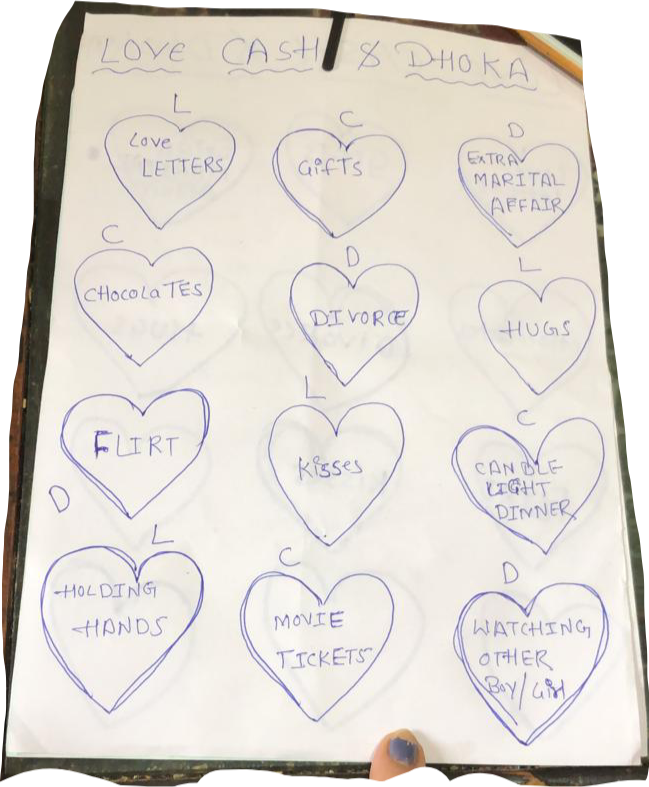 LOVE CASH & DHOKA
L
Love
LETTERS
C
GifTS
D
EXTRA
MARITAL
AFFAIR
C
CHOCOLATES
D
DIVORCE
L
HUGS
FLIRT
D
L
Kisses
C
CANDLE
LIGHT
DINNER
L
HOLDING
HANDS
C
MOVIE
TICKETS
D
WATCHING
OTHER
Boy/Girl